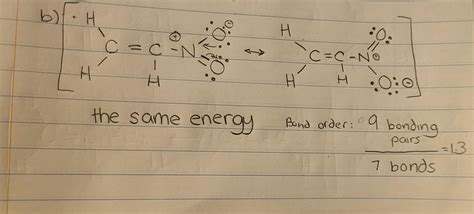 b) [ H H ⊖ O ⊕ C = C - N O H H ↔ H H C = C - N ⊕ O O ⊖ H H ]
the same energy Bond order: 9 bonding pairs = 1.3
7 bonds